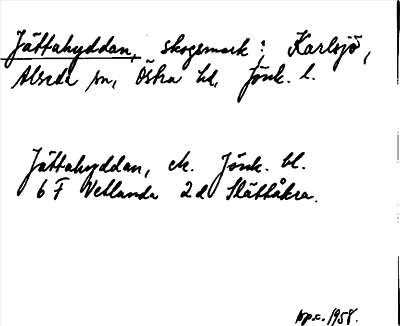 Jättahyddan, skogsmark: Karlsjö,
Alseda sn, Östra hd, Jönk. l.
Jättahyddan, ek. Jönk. bl.
6 F Vetlanda 2 d Slättåkra.
1958.